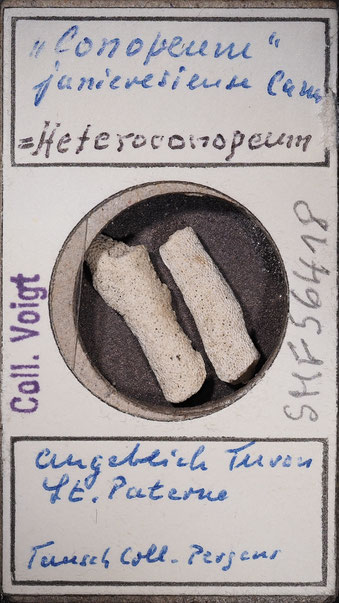 „Conopeum“
janieresiense Canu
=Heteroconopeum
Coll. Voigt
SMF 56418
angeblich Turon
St. Paterne
Tausch Coll. Pergens